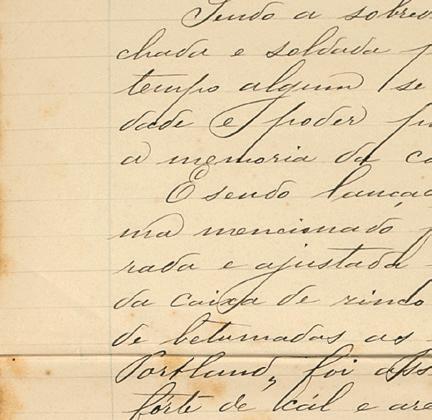 Sendo a sobred
chada e soldada p
tempo algum se
dade e poder pu
a memoria da co
E sendo lançad
ma mencionado p
rada e ajustada
da caixa de zinco
de betumadas as
Portland, foi ass
forte de cál e are